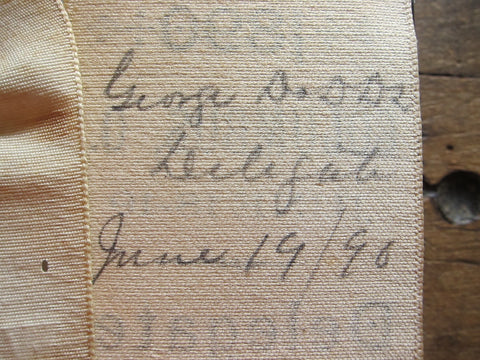 George DoDDs
Delegate
June 19/96